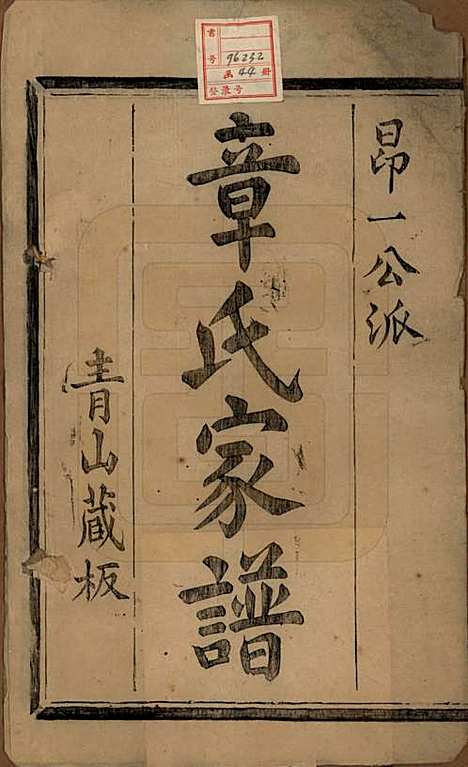 昂一公派
章氏家譜
青山藏板
書號 96252
函 44 冊
登录号